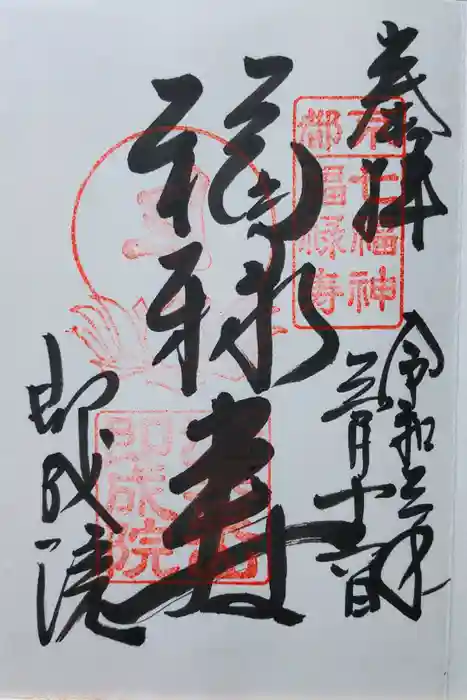 奉拝
令和三年
三月十六日
福禄寿
即成院
京都
七福神
福禄寿
即成院